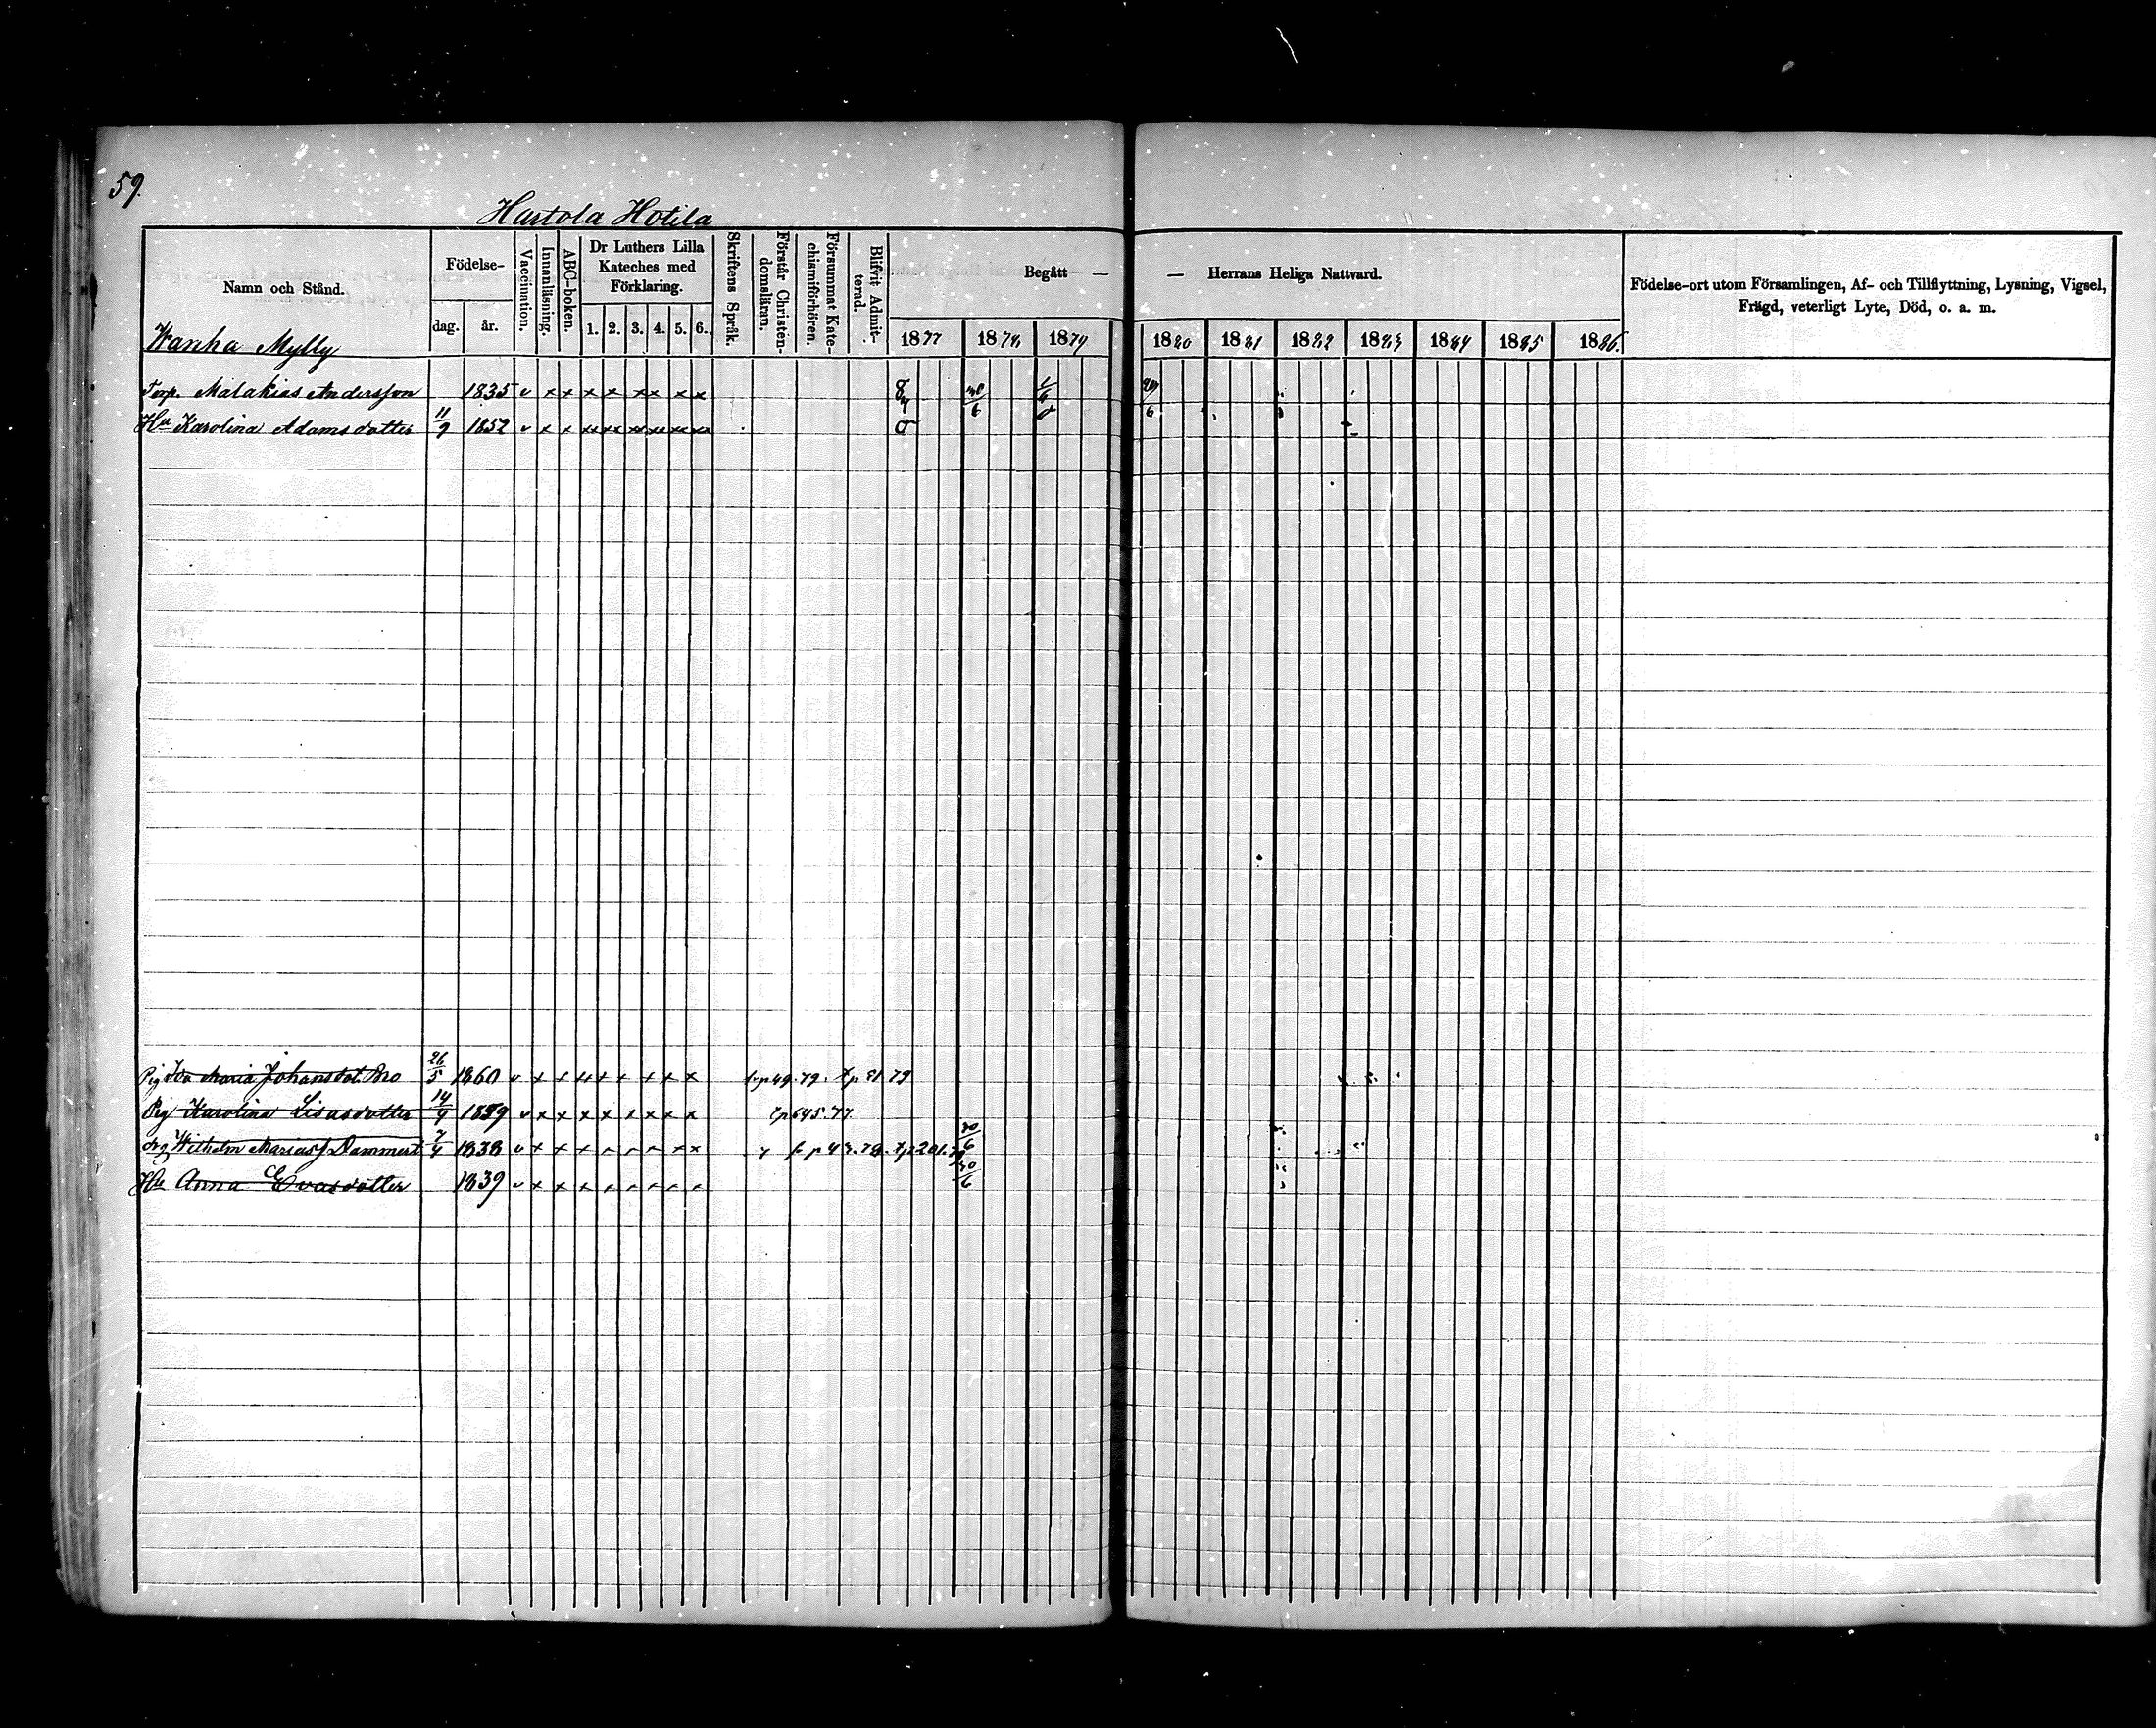 59.
Hartola Hotila
Namn och Stånd.
Födelse-
dag.
år.
Vaccination.
Innanläsning.
ABC-boken.
Dr Luthers Lilla
Kateches med
Förklaring.
1. 2. 3. 4. 5. 6.
Skriftens Språk.
Förstår Christen-
domsläran.
Försummat Kate-
chismiförhören.
Blifvit Admit-
terad.
Begått — — Herrans Heliga Nattvard.
1877 1878 1879 1880 1881 1882 1883 1884 1885 1886.
Födelse-ort utom Församlingen, Af- och Tillflyttning, Lysning, Vigsel,
Frägd, veterligt Lyte, Död, o. a. m.
Wanha Mylly
Torp. Malakias Andersson 1835 v x x x x x x x x
Hu Karolina Adamsdotter 11/9 1852 v x x xx xx xx xx xx xx
Pig Ida Maria Johansdot. Bro 26/5 1860 v x x xx x x x x x
Pig Karolina Lisasdotter 14/4 1859 v x x x x x x x x
Wilhelm Mariasf Dammert 7/4 1838 v x x 30/6
Hu Anna Evasdotter 1839 v x x 30/6